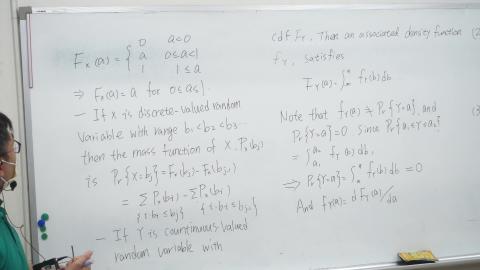 0 a<0
F_x(a) = { a 0≤a<1
1 1≤a
⇒ F_x(a) = a for 0≤a≤1.
— If X is discrete-valued random
variable with range b₁<b₂<b₃...
then the mass function of X, P_x(b_j)
is P_r{X=b_j} = F_x(b_j) - F_x(b_{j-1})
= Σ P_x(b_i) - Σ P_x(b_i)
{i: b_i ≤ b_j} {i: b_i ≤ b_{j-1}}
— If Y is countinuous-valued
random variable with
cdf F_Y, Then an associated density function
f_Y, satisfies
F_Y(a) = ∫ f_Y(b) db
Note that f_Y(a) ≠ P_r{Y=a}, and
P_r{Y=a} = 0 since P_r{a₁≤Y≤a₂}
= ∫_{a₁}^{a₂} f_Y(b) db,
⇒ P_r{Y=a} = ∫_a^a f_Y(b) db = 0
And f_Y(a) = dF_Y(a)/da